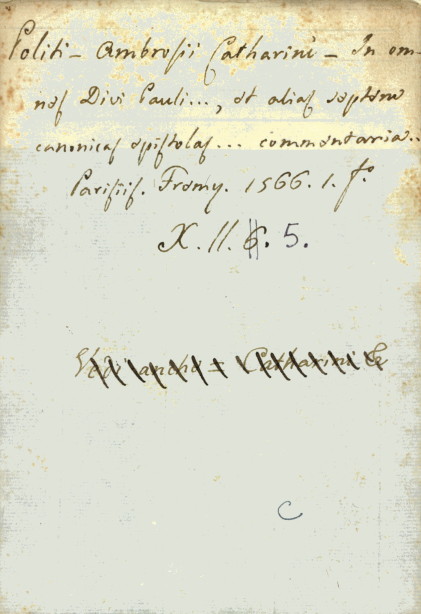 Politi - Ambrosii Catharini - In om-
nes Divi Pauli..., et alias septem
canonicas epistolas... commentaria..
Parisiis. Fremy. 1566. 1. f.º
X. 11. 6. 5.
Vedi anche = Catharini
C